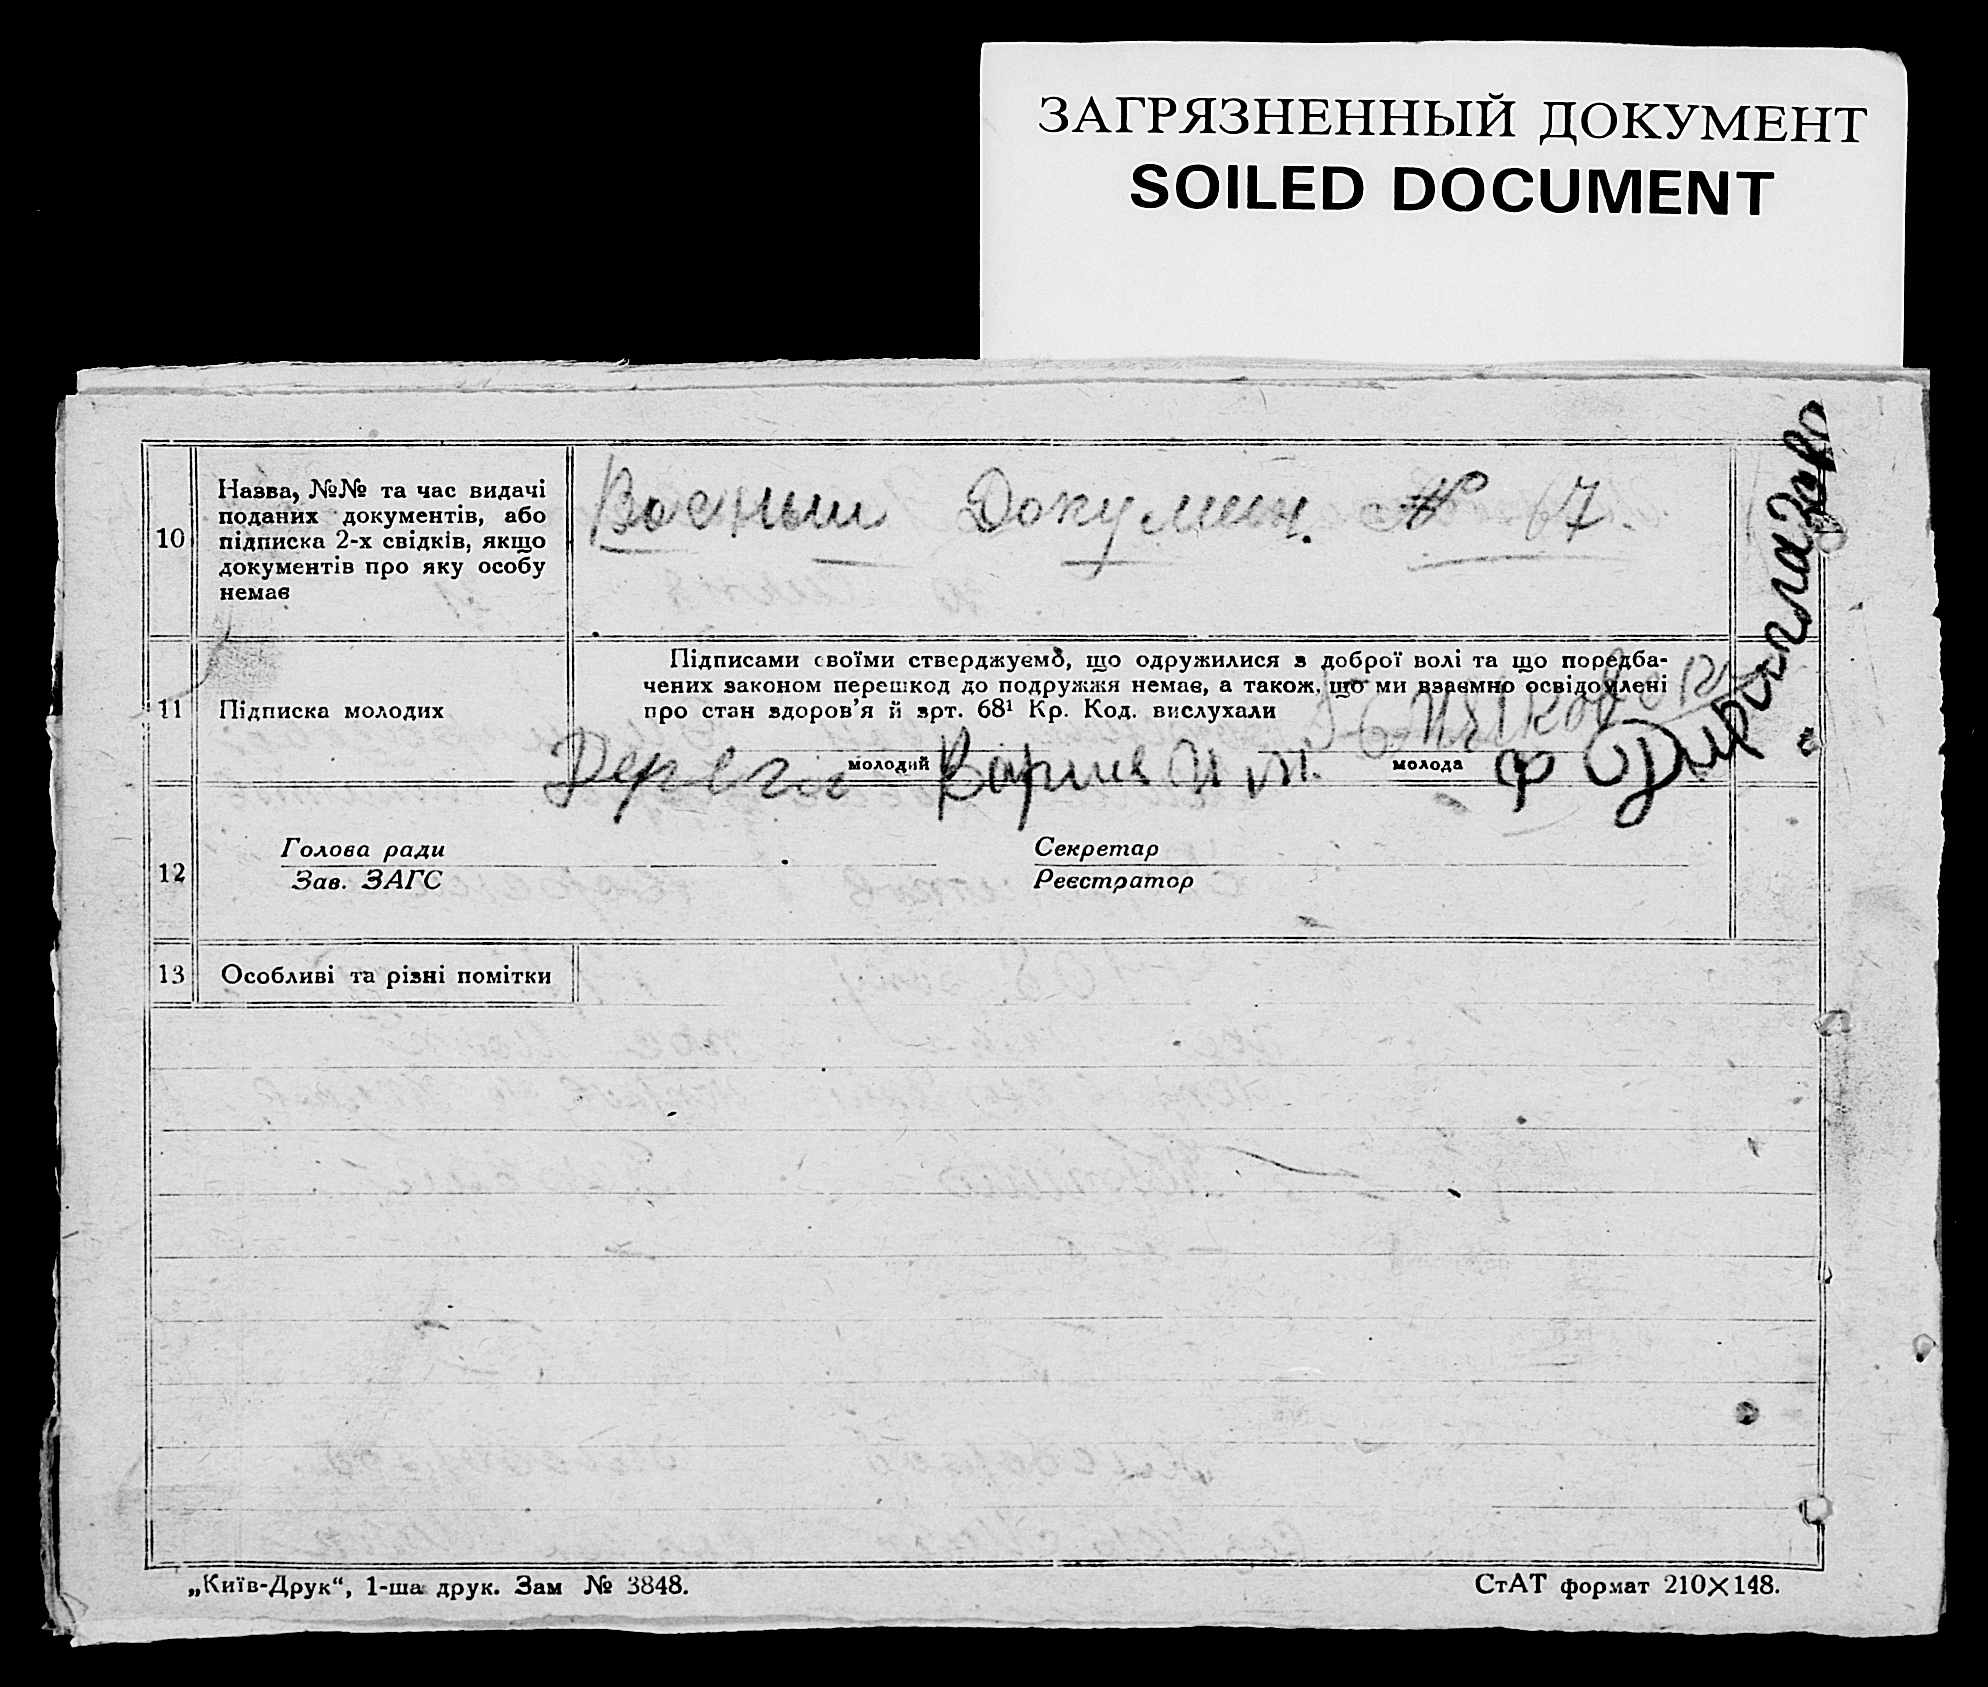 ЗАГРЯЗНЕННЫЙ ДОКУМЕНТ
SOILED DOCUMENT
10
Назва, №№ та час видачі
поданих документів, або
підписка 2-х свідків, якщо
документів про яку особу
немає
Докумен. № 67.
11
Підписка молодих
Підписами своїми стверджуємо, що одружилися з доброї волі та що передба-
чених законом перешкод до подружжя немає, а також, що ми взаємно освідомлені
про стан здоров'я й арт. 68¹ Кр. Код. вислухали
молодий
молода
12
Голова ради
Зав. ЗАГС
Секретар
Реєстратор
13
Особливі та різні помітки
„Київ-Друк“, 1-ша друк. Зам № 3848.
СтАТ формат 210×148.